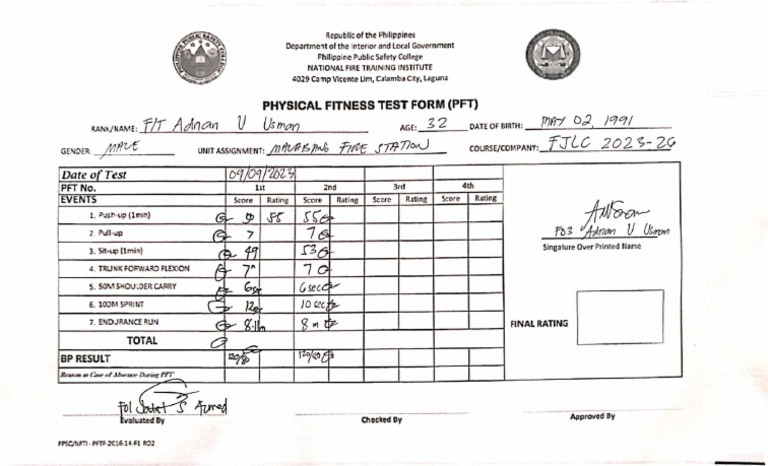 Republic of the Philippines
Department of the Interior and Local Government
Philippine Public Safety College
NATIONAL FIRE TRAINING INSTITUTE
4029 Camp Vicente Lim, Calamba City, Laguna
PHYSICAL FITNESS TEST FORM (PFT)
RANK/NAME: F/T Adnan U Usman AGE: 32 DATE OF BIRTH: MAY 02, 1991
GENDER: MALE UNIT ASSIGNMENT: MALABANG FIRE STATION COURSE/COMPANY: FJLC 2023-26
Date of Test 09/09/2023
PFT No. 1st 2nd 3rd 4th
EVENTS Score Rating Score Rating Score Rating Score Rating
1. Push-up (1min) 50 55 55
2. Pull-up 7 7
3. Sit-up (1min) 49 53
4. TRUNK FORWARD FLEXION 7" 7
5. 50M SHOULDER CARRY 6sec 6sec
6. 100M SPRINT 12sec 10sec
7. ENDURANCE RUN 8.1m 8m
TOTAL
BP RESULT 120/80 120/80
Reason in Case of Absence During PFT
FO3 Adnan U Usman
Singature Over Printed Name
FINAL RATING
FO1 S Axmed
Evaluated By Checked By Approved By
PPSC/NFTI - PFTF-2016-14-F1 R02